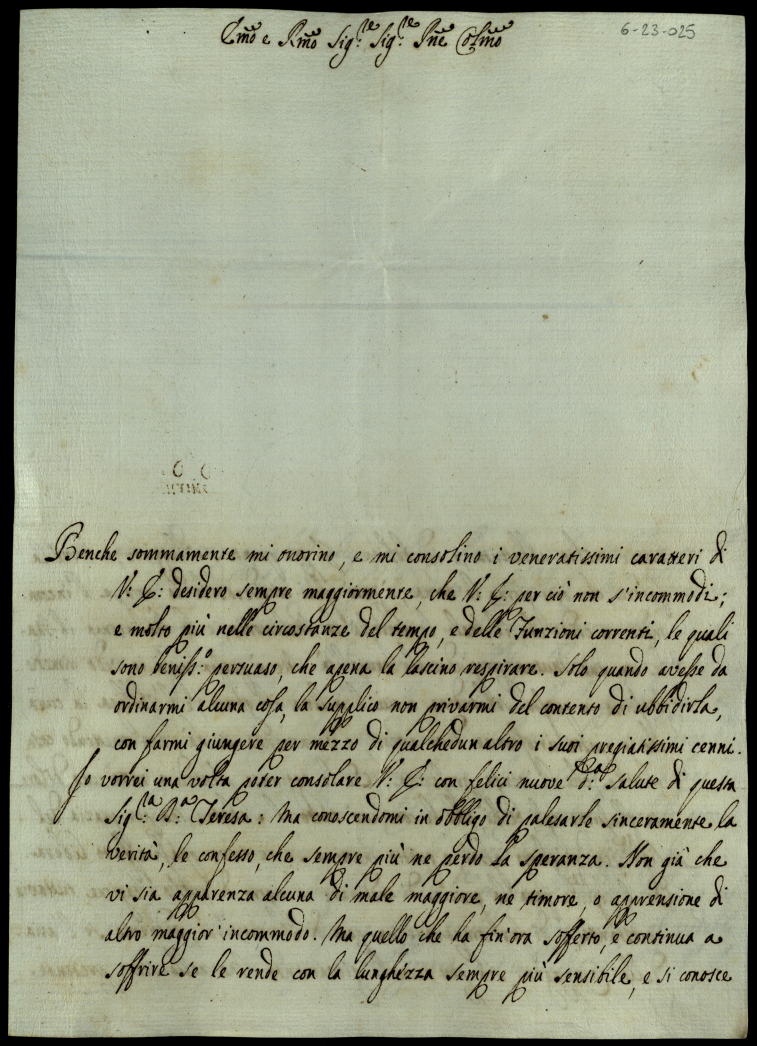 Emo e Rmo Sig.re Sig.re Pne Colmo
6-23-025
Benche sommamente mi onorino, e mi consolino i veneratissimi caratteri di
V: E: desidero sempre maggiormente, che V: E: per ciò non s'incommodi;
e molto più nelle circostanze del tempo, e delle Funzioni correnti, le quali
sono beniss:o persuaso, che apena la lascino respirare. Solo quando avesse da
ordinarmi alcuna cosa, la supplico non privarmi del contento di ubbidirla,
con farmi giungere per mezzo di qualchedun altro i suoi pregiatissimi cenni.
Io vorrei una volta poter consolare V: E: con felici nuove d:a salute di questa
Sig:ra B:a Teresa: Ma conoscendomi in obbligo di palesarle sinceramente la
verità, le confesso, che sempre più ne perdo la speranza. Non già che
vi sia apparenza alcuna di male maggiore, ne timore, o apprensione di
altro maggior' incommodo. Ma quello che ha fin'ora sofferto, e continua a
soffrire se le rende con la lunghezza sempre più sensibile, e si conosce